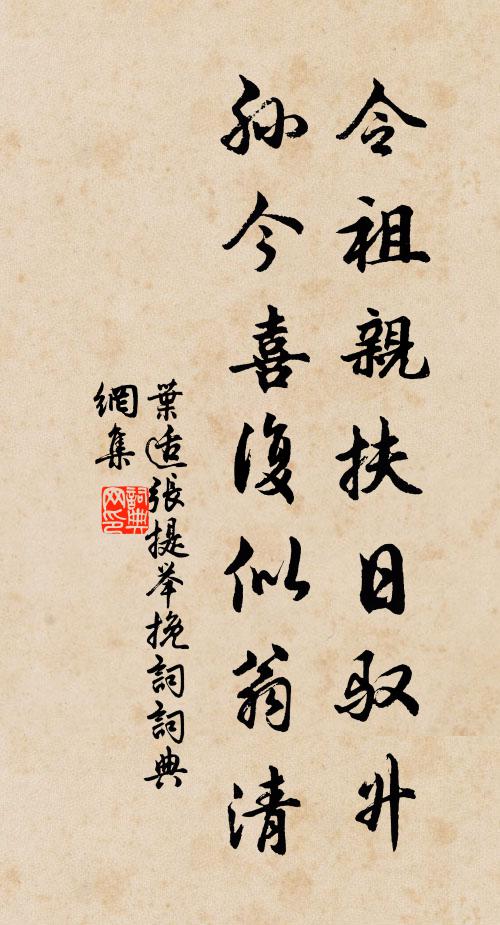 令祖親扶日驭升
孙今喜復似翁清
葉适張提举挽詞詞典
網集
詞典
网印